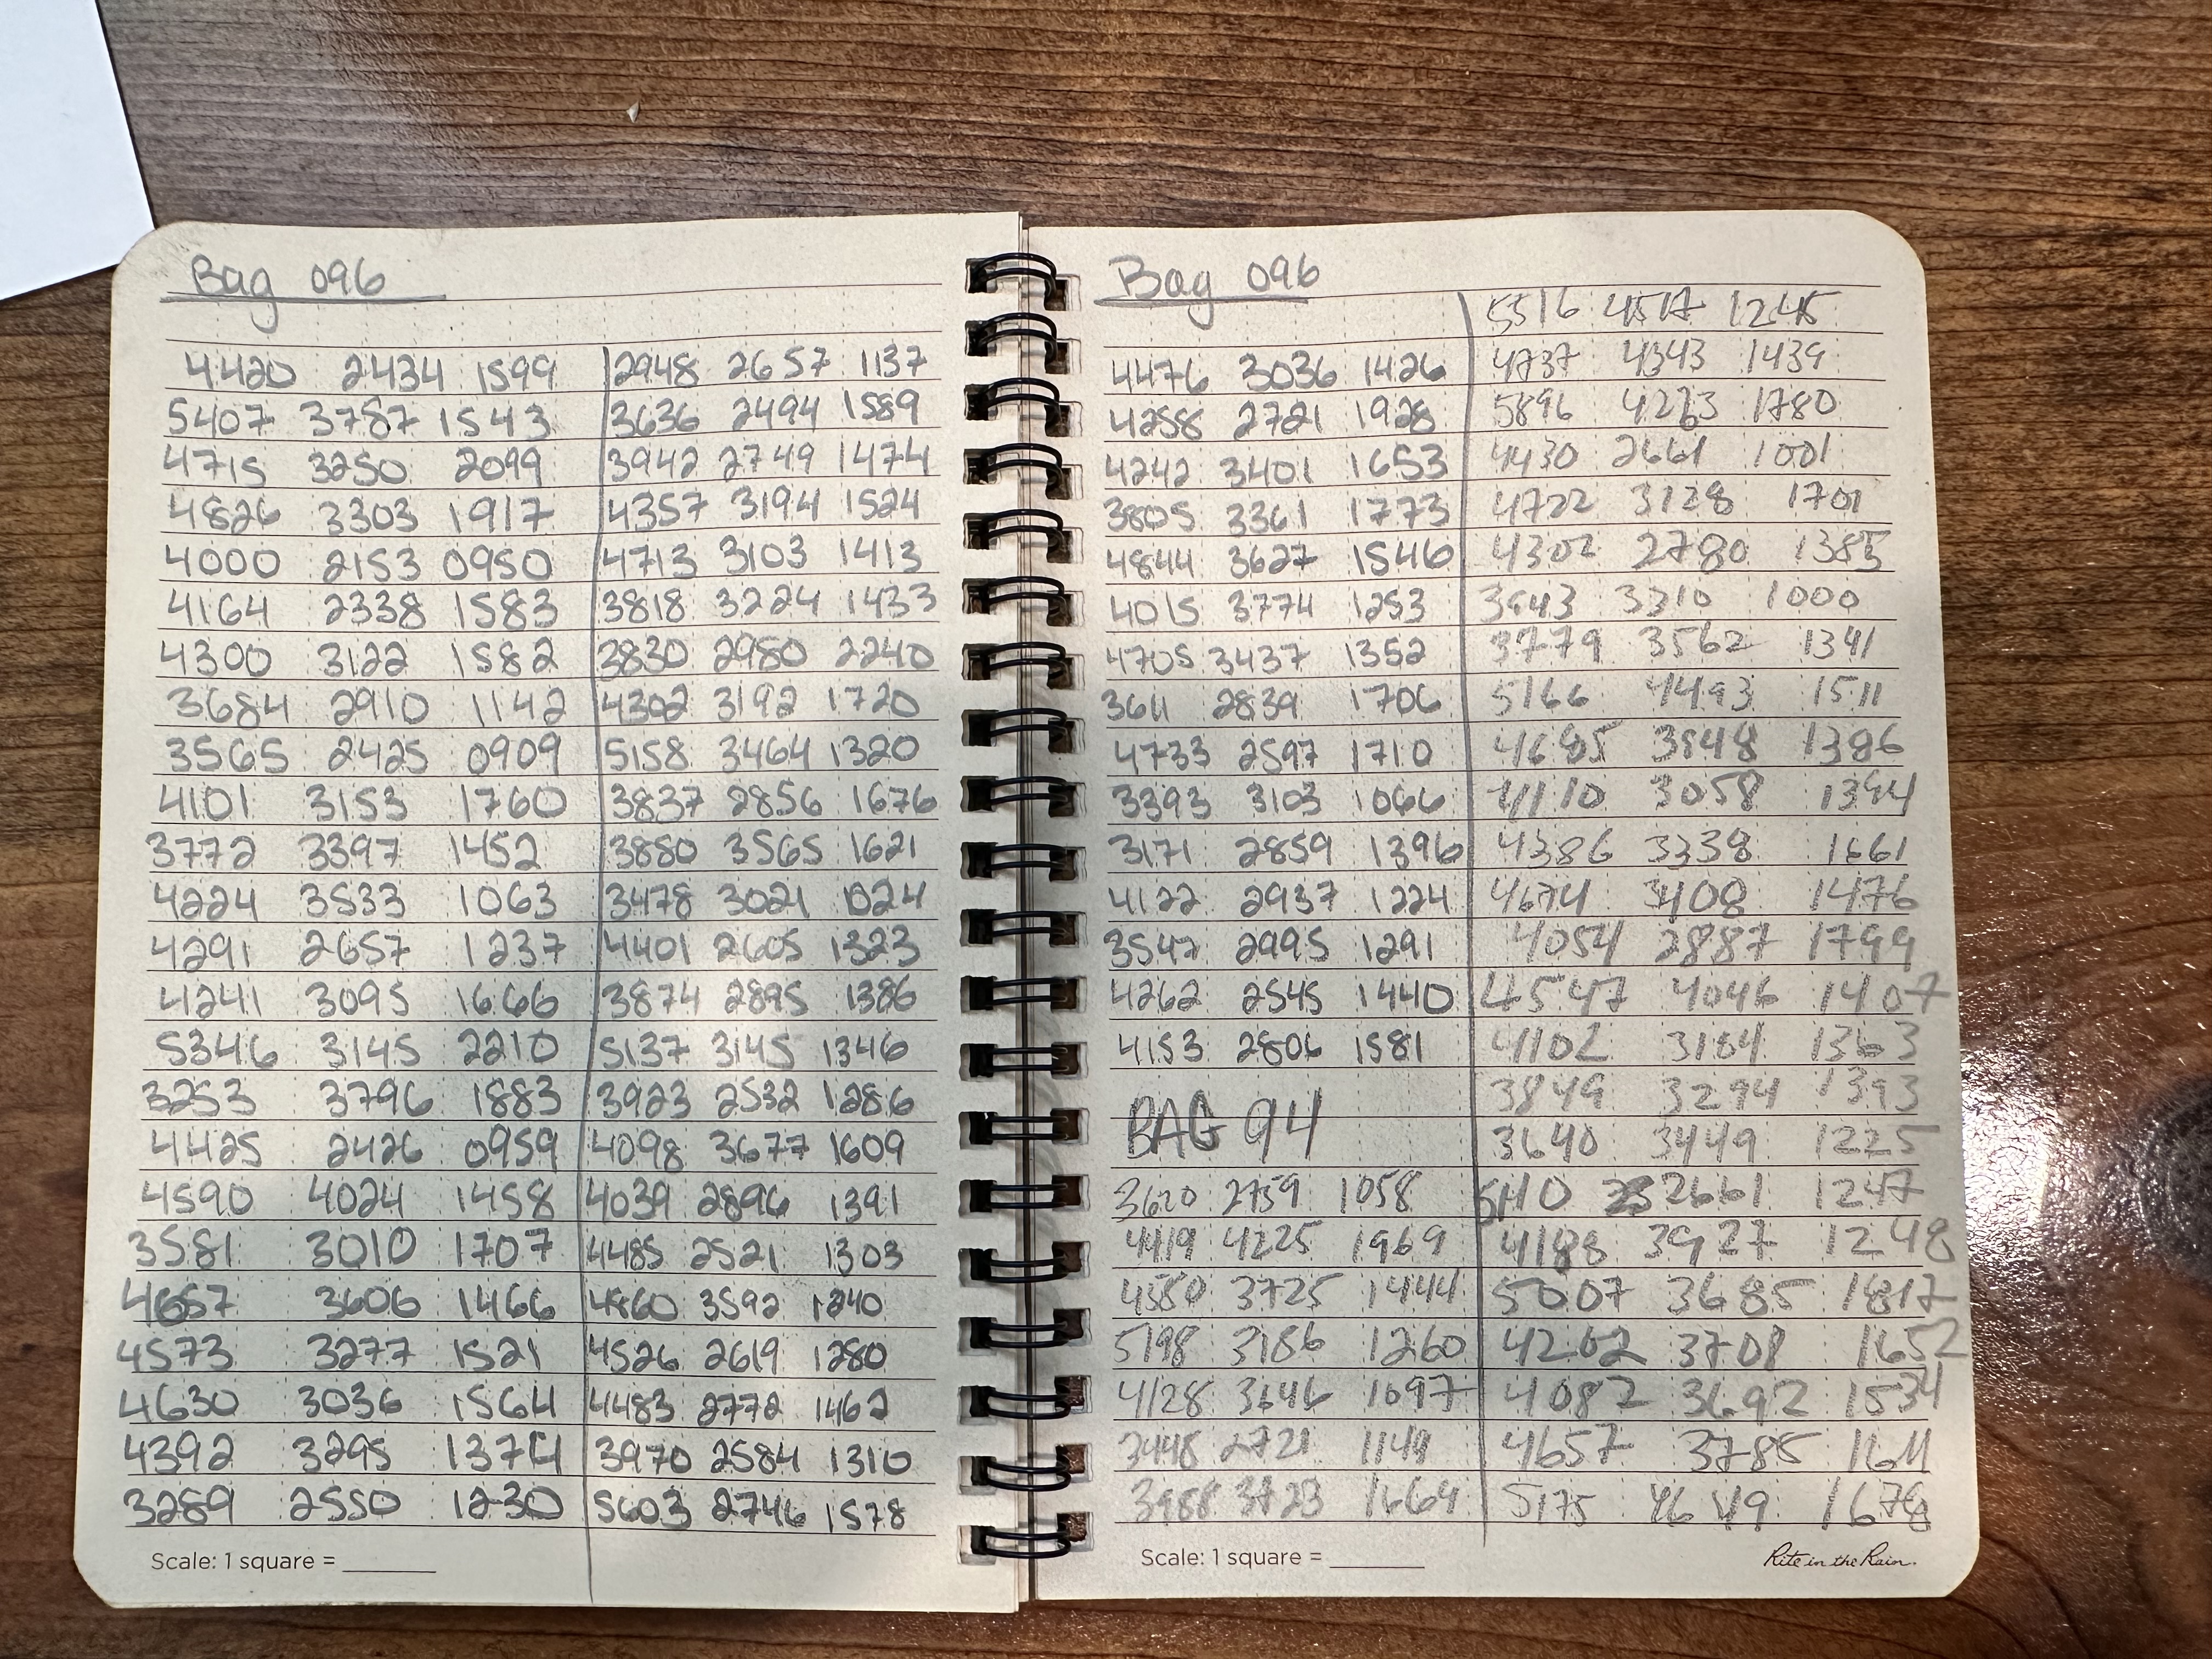 Bag 096
4420 2434 1599
5407 3787 1543
4715 3250 2099
4826 3303 1917
4000 2153 0950
4164 2338 1583
4300 3122 1582
3684 2910 1142
3565 2425 0909
4101 3153 1760
3772 3397 1452
4224 3533 1063
4291 2657 1237
4241 3095 1666
5346 3145 2210
3253 3796 1883
4425 2426 0959
4590 4024 1458
3581 3010 1707
4657 3606 1466
4573 3277 1521
4630 3036 1564
4392 3295 1374
3289 2550 1230
2948 2657 1137
3636 2494 1589
3942 2749 1474
4357 3194 1524
4713 3103 1413
3818 3224 1433
3830 2980 2240
4302 3192 1720
5158 3464 1320
3837 2856 1676
3880 3565 1621
3478 3021 1024
4401 2605 1323
3874 2895 1386
5137 3145 1346
3923 2532 1286
4098 3677 1609
4039 2896 1391
4485 2521 1303
4860 3592 1240
4526 2619 1280
4483 2772 1462
3970 2584 1310
5603 2746 1578
Scale: 1 square =
Bag 096
4476 3036 1426
4258 2721 1928
4242 3401 1653
3805 3361 1773
4844 3627 1546
4015 3774 1253
4705 3437 1352
3611 2839 1706
4733 2597 1710
3393 3103 1066
3171 2859 1396
4122 2937 1224
3547 2995 1291
4262 2545 1440
4153 2806 1581
BAG 94
3620 2759 1058
4419 4225 1969
4580 3725 1444
5198 3186 1260
4128 3646 1097
3448 2721 1149
3988 3723 1664
5516 4517 1245
4737 4343 1439
5896 1780
4430 2661 1001
4722 3128 1701
4302 2780 1385
3943 3310 1000
3779 3562 1341
5166 4493 1511
4685 3848 1386
4110 3058 1394
4386 3338 1661
4674 3408 1476
4054 2887 1799
4547 4046 1407
4102 3184 1363
3849 3294 1393
3640 3449 1225
5110 2661 1247
4188 3927 1248
5007 3685 1817
4202 3708 1652
4082 3692 1534
4657 3785 1611
5175 4649 1678
Scale: 1 square =
Rite in the Rain.